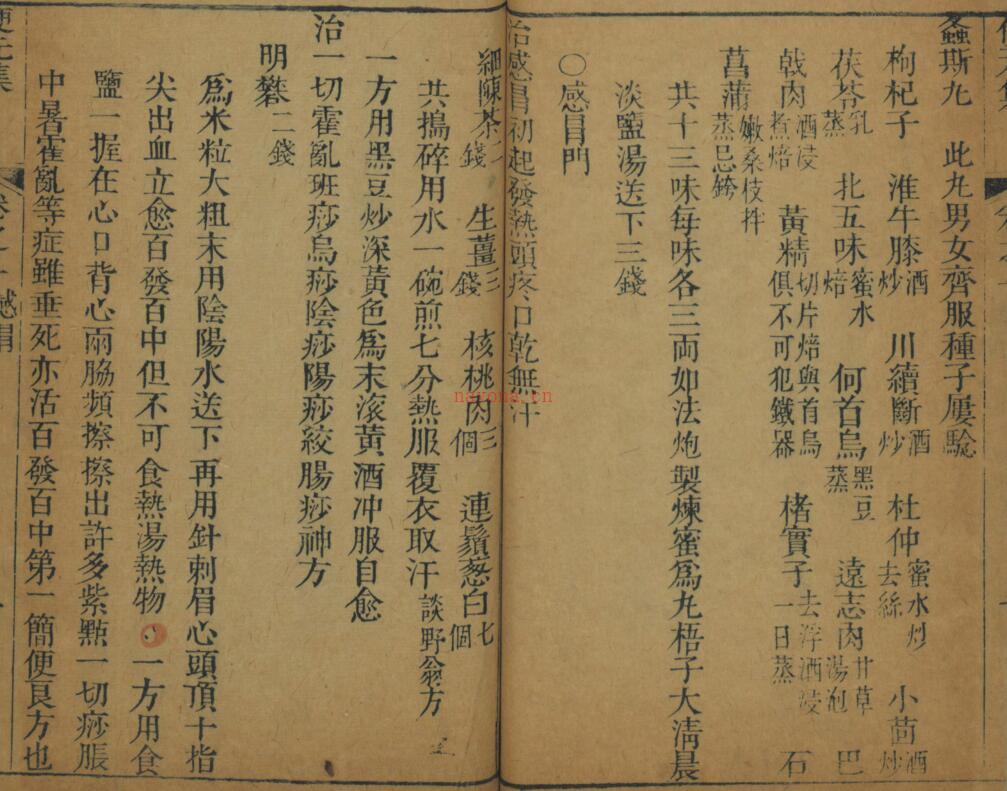 螽斯丸　此丸男女齊服種子屢驗
枸杞子　淮牛膝酒炒　川續斷酒炒　杜仲蜜水炒去絲　小茴酒炒
茯苓乳蒸　北五味蜜水焙　何首烏黑豆蒸　遠志肉甘草湯泡　巴
戟肉酒浸煮焙　黃精切片焙與首烏俱不可犯鐵器　楮實子去浮酒浸一日蒸　石
菖蒲嫩桑枝拌蒸忌鉄
共十三味每味各三両如法炮製煉蜜爲丸梧子大淸晨
淡鹽湯送下三錢
○感冒門
治感冒初起發熱頭疼口乾無汗
細陳茶二錢　生薑三錢　核桃肉三個　連鬚葱白七個
共搗碎用水一碗煎七分熱服覆衣取汗談野翁方
一方用黑豆炒深黃色爲末滾黃酒冲服自愈
治一切霍亂班痧烏痧陰痧陽痧絞腸痧神方
明礬二錢
爲米粒大粗末用陰陽水送下再用針刺眉心頭頂十指
尖出血立愈百發百中但不可食熱湯熱物　一方用食
鹽一握在心口背心兩脇頻擦擦出許多紫㸃一切痧脹
中暑霍亂等症雖垂死亦活百發百中第一簡便良方也
nayona.cn